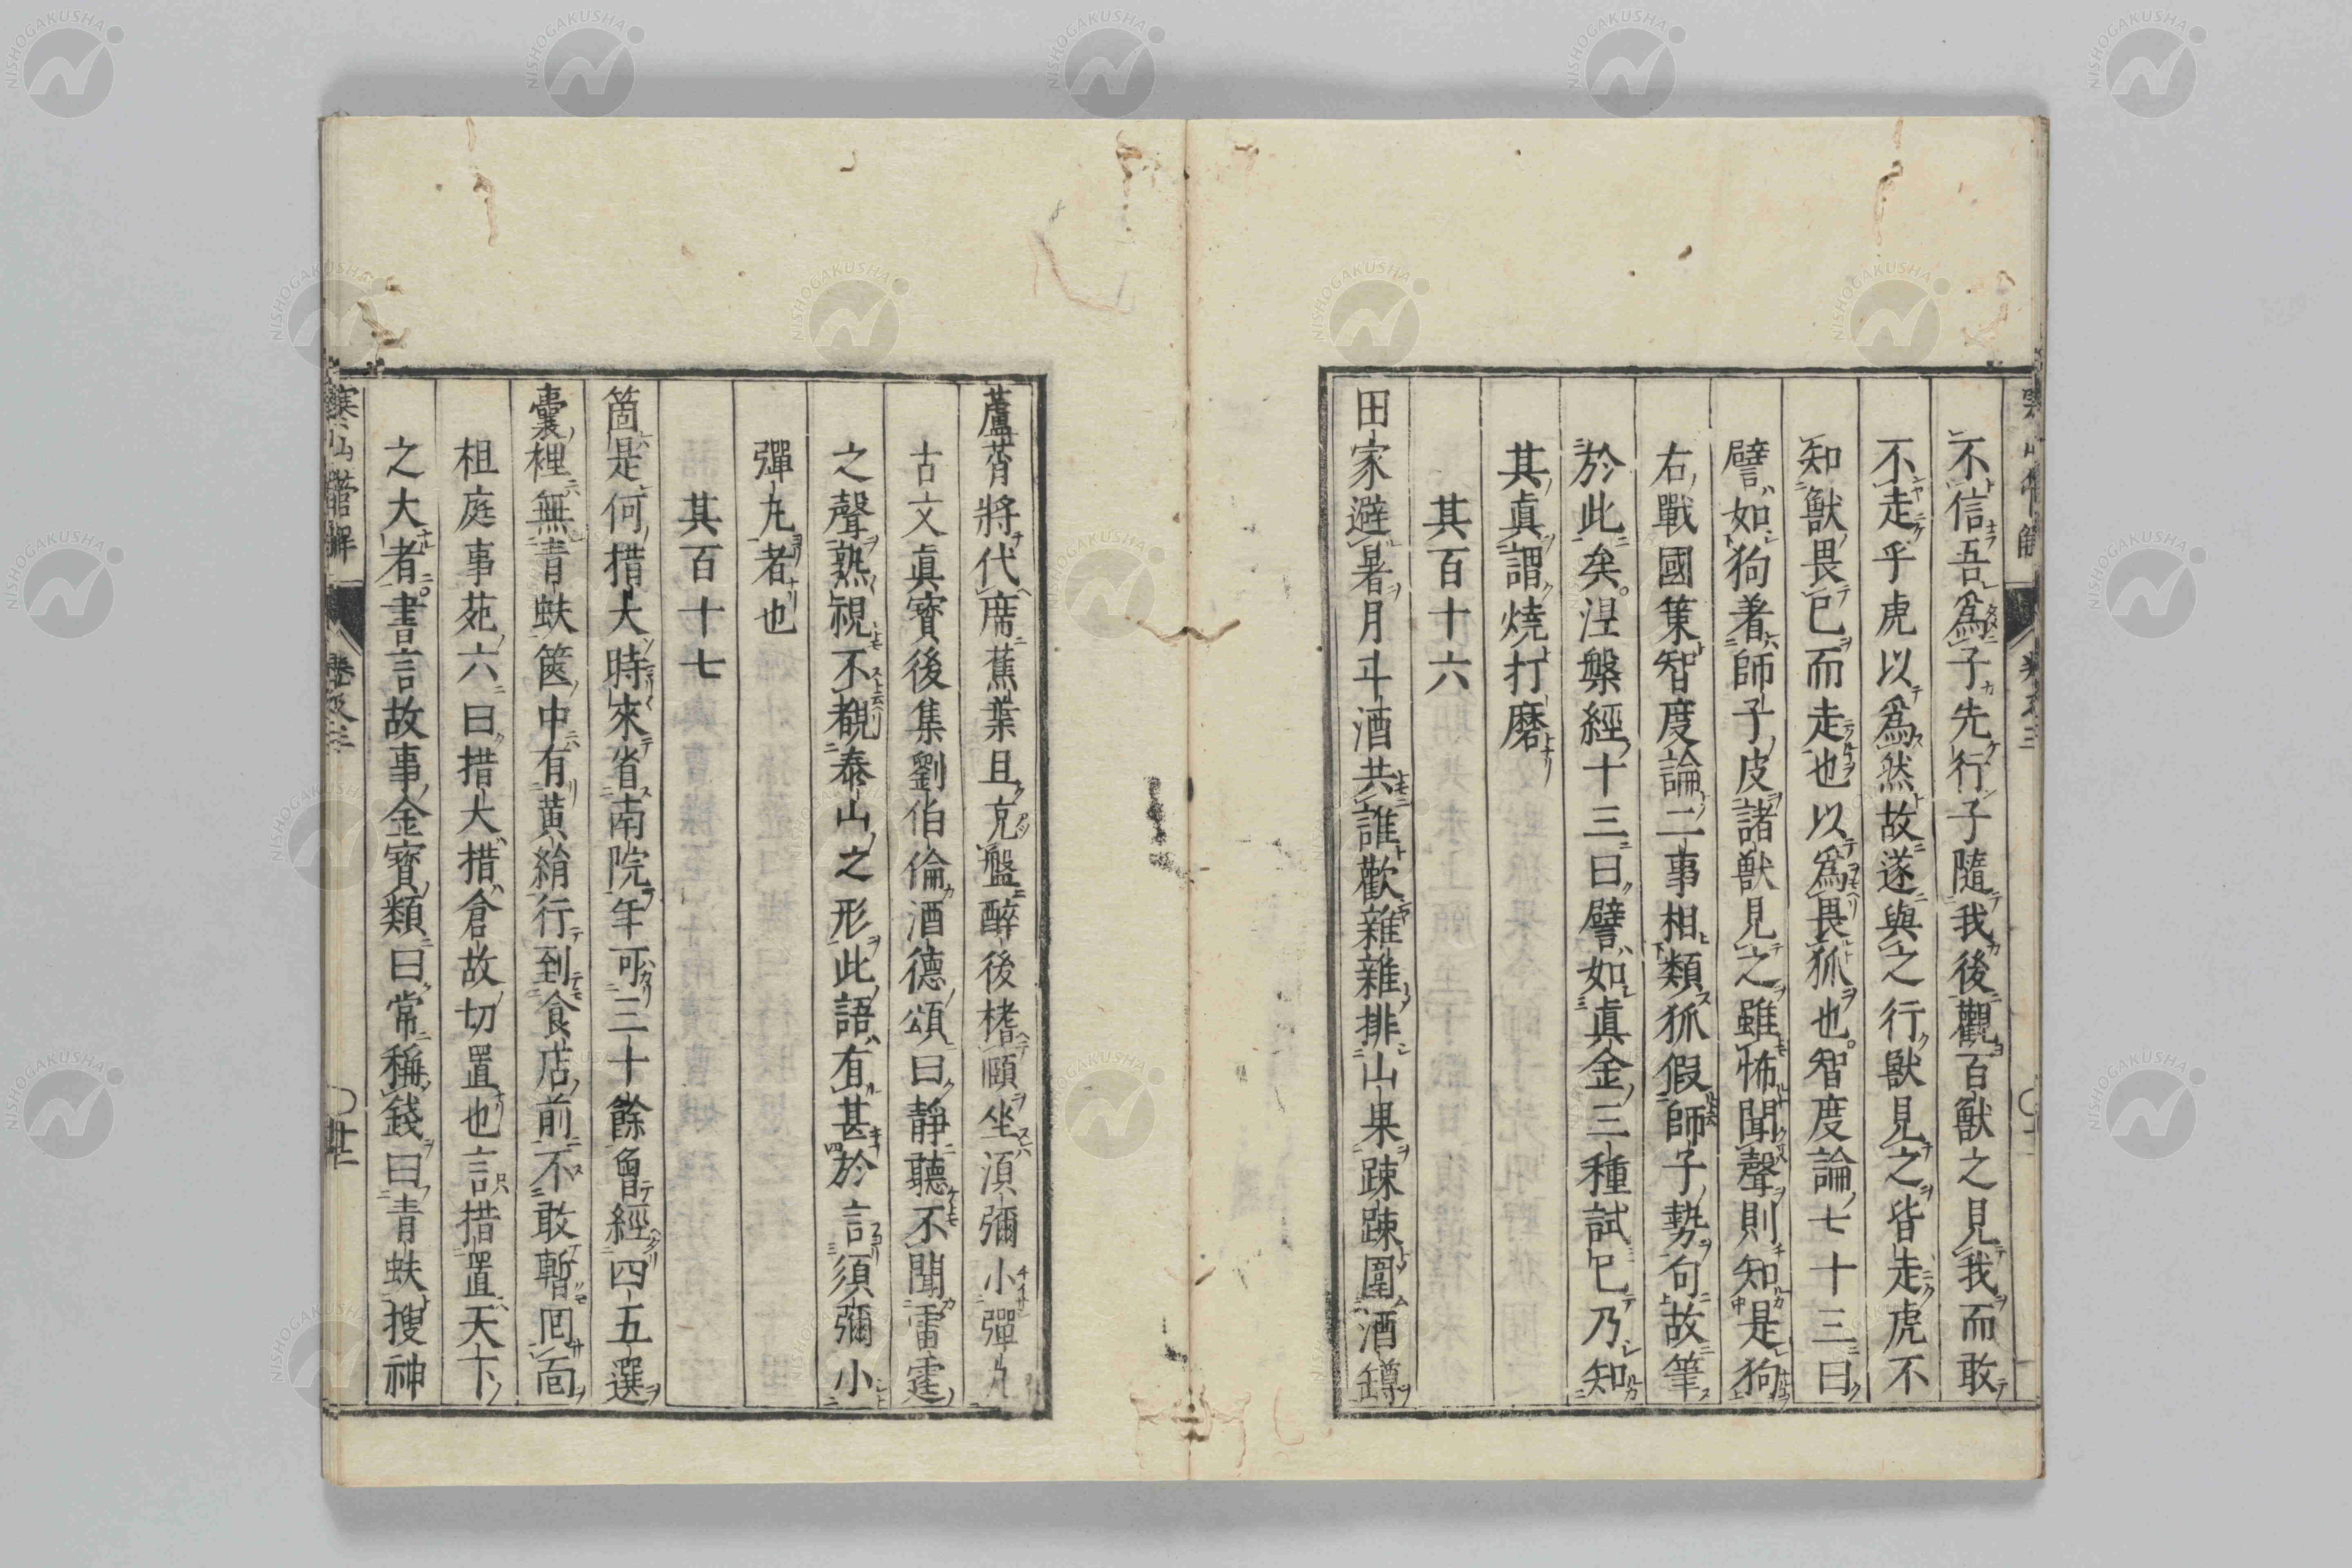 不信吾爲子先行子隨我後觀百獸之見我而敢
不走乎虎以爲然故遂與之行獸見之皆走虎不
知獸畏已而走也以爲畏狐也。智度論七十三曰
譬如狗著師子皮諸獸見之雖怖聞聲則知是狗
右戰國策智度論二事相類狐假師子勢句故筆
於此矣。涅槃經十三曰譬如眞金三種試已乃知
其眞謂燒打磨
其百十六
田家避暑月斗酒共誰歡雜雜排山果踈踈圍酒罇
蘆莦將代席蕉葉且充盤醉後榰頤坐湏彌小彈丸
古文眞寶後集劉伯倫酒德頌曰靜聽不聞雷霆
之聲熟視不覩泰山之形此語有甚於言須彌小
彈丸者也
其百十七
箇是何措大時來省南院年可三十餘曾經四五選
囊裡無青蚨篋中有黄絹行到食店前不敢暫囘面
祖庭事苑六曰措大措倉故切置也言措置天下
之大者。書言故事金寶類曰常稱錢曰青蚨搜神
寒山詩管解 卷之三 〇廿二
NISHOGAKUSHA